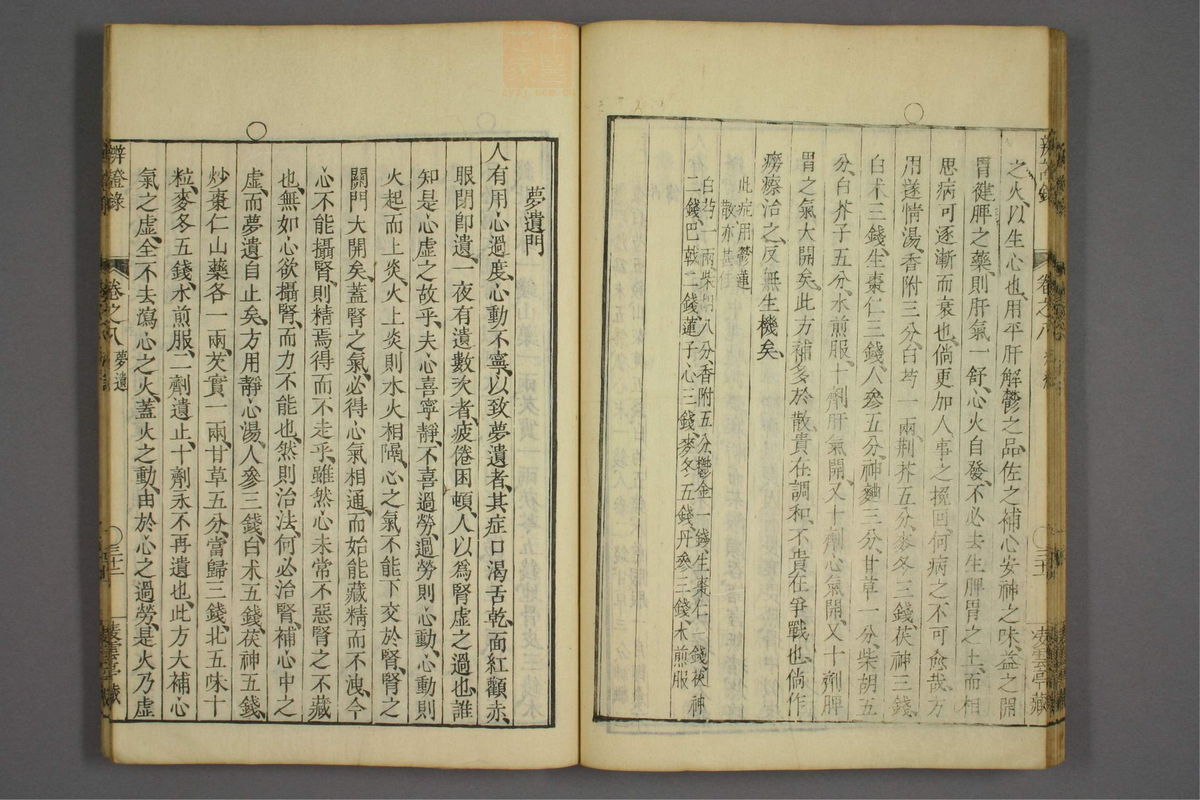 之火、以生心也、用平肝解鬱之品、佐之補心安神之味、益之開
胃健脾之藥、則肝氣一舒、心火自發、不必去生脾胃之土、而相
思病可逐漸而衰也、倘更加人事之挽回、何病之不可愈哉、方
用遂情湯、香附三分、白芍一兩、荆芥五分、麥冬三錢、茯神三錢、
白术三錢、生棗仁三錢、人參五分、神麯三分、甘草一分、柴胡五
分、白芥子五分、水煎服、十劑肝氣開、又十劑心氣開、又十劑脾
胃之氣大開矣、此方補多於散、貴在調和、不貴在爭戰也、倘作
癆瘵治之、反無生機矣、
此症用鬱蓮
散亦甚佳
白芍一兩柴胡八分、香附五分、鬱金一錢、生棗仁一錢、茯神
二錢、巴戟二錢、蓮子心三錢、麥冬五錢、丹參三錢、水煎服
辨證錄
卷之八
三十一
夢遺門
人有用心過度、心動不寧、以致夢遺者、其症口渴舌乾、面紅顴赤、
眼閉卽遺、一夜有遺數次者、疲倦困頓、人以爲腎虛之過也、誰
知是心虛之故乎、夫心喜寧靜、不喜過勞、過勞則心動、心動則
火起而上炎、火上炎則水火相隔、心之氣不能下交於腎、腎之
關門大開矣、蓋腎之氣、必得心氣相通、而始能藏精而不洩、今
心不能攝腎、則精焉得而不走乎、雖然心未常不惡腎之不藏
也、無如心欲攝腎、而力不能也、然則治法、何必治腎、補心中之
虛、而夢遺自止矣、方用靜心湯、人參三錢、白术五錢、茯神五錢、
炒棗仁山藥各一兩、芡實一兩、甘草五分、當歸三錢、北五味十
粒、麥冬五錢、水煎服、二劑遺止、十劑永不再遺也、此方大補心
氣之虛、全不去瀉心之火、蓋火之動、由於心之過勞、是火乃虛
辨證錄
卷之八
夢遺
三十二